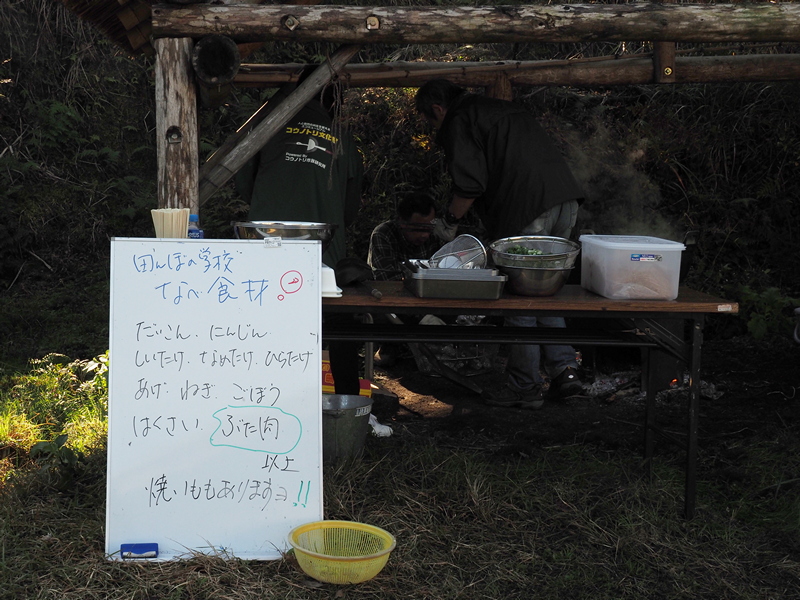 コウノトリ文化館
Powered By
コウノトリ市民研究所
田んぼの学校
なべ食材
だいこん、にんじん
しいたけ、なめたけ、ひらたけ
あげ、ねぎ、ごぼう
はくさい、ぶた肉
以上
焼いもあります